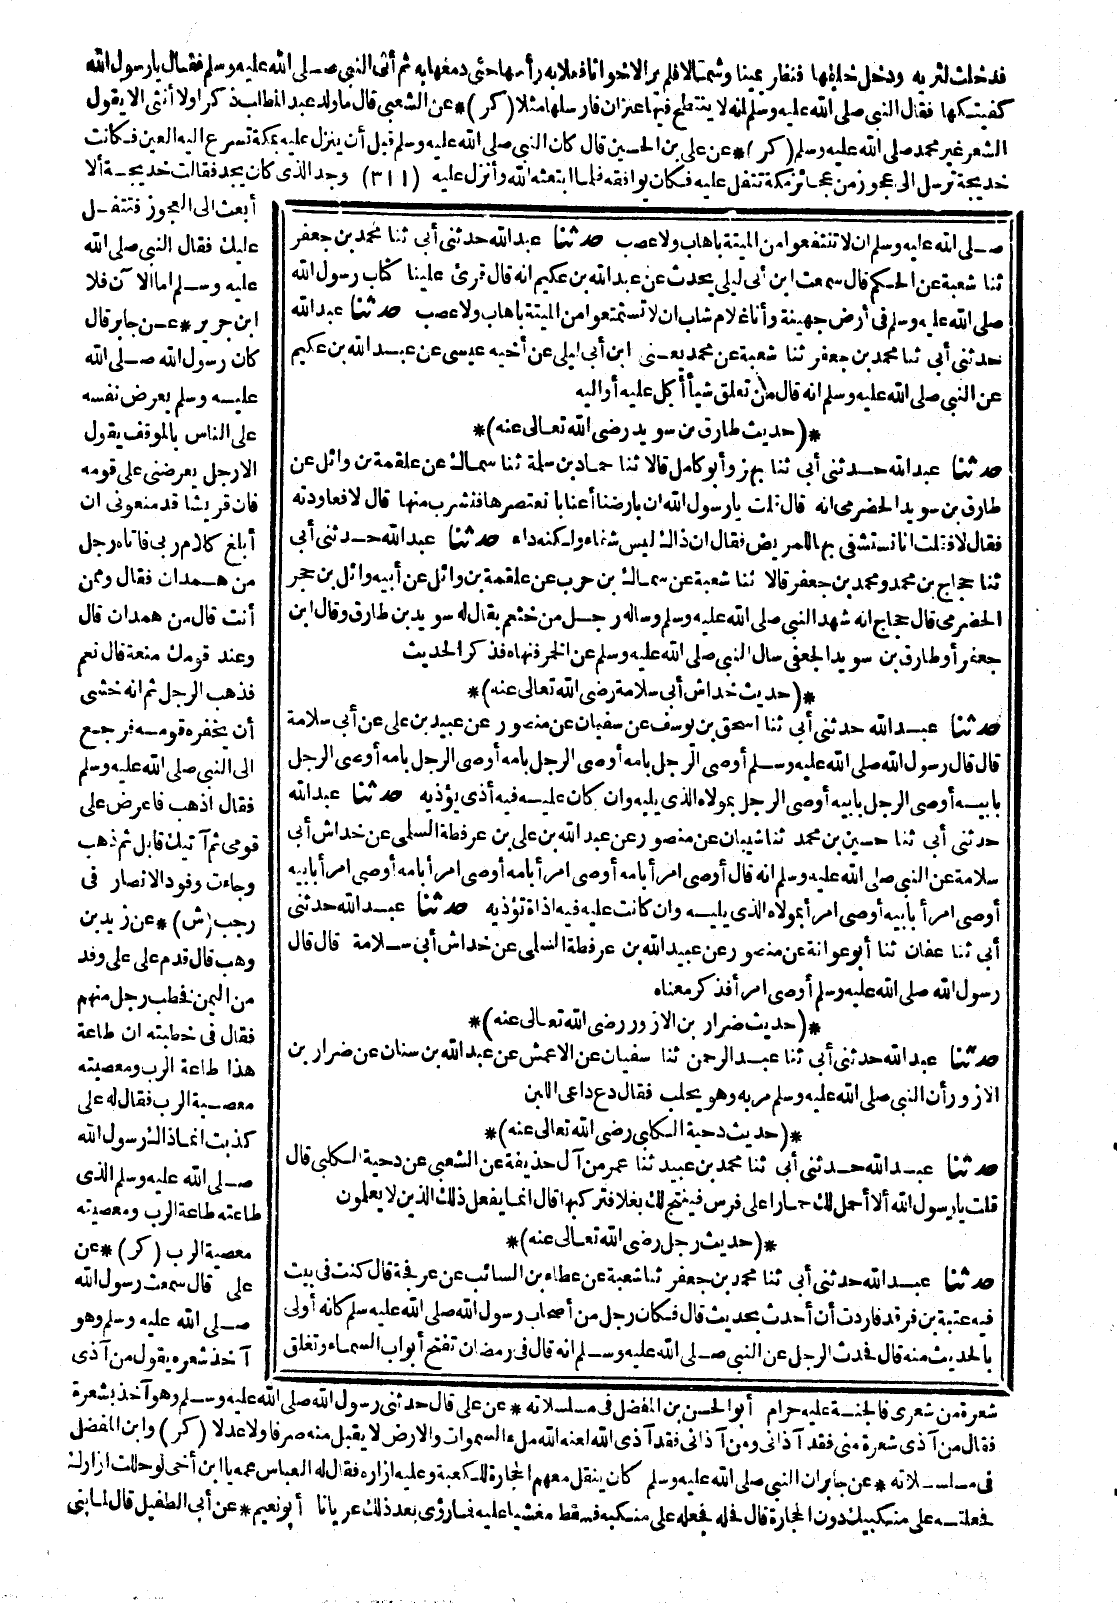 فدخلت لتريه ودخل خلفها فنظر يمينا وشمالا فلم ير الاخوانا فعلا به رأسها حتى دمغها به ثم أتى النبي صلى الله عليه وسلم فقال يا رسول الله
كفيتكها فقال النبي صلى الله عليه وسلم انه لا ينتطح فيها عنزان فارسلها مثلا (كر) * عن الشعبي قال ما ولد عبد المطلب ذكرا ولا أنثى الا يقول
الشعر غير محمد صلى الله عليه وسلم (كر) * عن على بن الحسين قال كان النبي صلى الله عليه وسلم قبل أن ينزل عليه بمكة تسرع اليه العين فكانت
خديجة ترسل الى عجوز من عجائز مكة تتفل عليه فكان يوافقه فلما ابتعثه الله وأنزل عليه (٣١١) وجد الذى كان يجد فقالت خديجة ألا
أبعث الى العجوز فتتفل
عليك فقال النبي صلى الله
عليه وسلم اما الآن فلا
ابن جرير * عن جابر قال
كان رسول الله صلى الله
عليه وسلم يعرض نفسه
على الناس بالموقف يقول
الا رجل يعرضنى على قومه
فان قريشا قد منعونى ان
أبلغ كلام ربى فاتاه رجل
من همدان فقال وممن
أنت قال من همدان قال
وعند قومك منعة قال نعم
فذهب الرجل ثم انه خشى
أن يخفره قومه فرجع
الى النبي صلى الله عليه وسلم
فقال اذهب فاعرض على
قومى ثم آتيك قابل ثم ذهب
وجاءت وفود الانصار فى
رجب (ش) * عن زيد بن
وهب قال قدم على على وفد
من اليمن فخطب رجل منهم
فقال فى خطبته ان طاعة
هذا طاعة الرب ومعصيته
معصية الرب فقال له على
كذبت انما ذاك رسول الله
صلى الله عليه وسلم الذى
طاعته طاعة الرب ومعصيته
معصية الرب (كر) * عن
على قال سمعت رسول الله
صلى الله عليه وسلم وهو
آخذ شعره يقول من آذى
صلى الله عليه وسلم ان لا تنتفعوا من الميتة باهاب ولا عصب حدثنا عبد الله حدثنى أبى ثنا محمد بن جعفر
ثنا شعبة عن الحكم قال سمعت ابن أبى ليلى يحدث عن عبد الله بن عكيم انه قال قرئ علينا كتاب رسول الله
صلى الله عليه وسلم فى أرض جهينة وأنا غلام شاب ان لا تستمتعوا من الميتة باهاب ولا عصب حدثنا عبد الله
حدثنى أبى ثنا محمد بن جعفر ثنا شعبة عن محمد يعنى ابن أبى ليلى عن أخيه عيسى عن عبد الله بن عكيم
عن النبي صلى الله عليه وسلم انه قال من تعلق شيأ أكل عليه أو اليه
*(حديث طارق بن سويد رضى الله تعالى عنه)*
حدثنا عبد الله حدثنى أبى ثنا بهز وأبو كامل قالا ثنا حماد بن سلمة ثنا سماك عن علقمة بن وائل عن
طارق بن سويد الحضرمى انه قال قلت يا رسول الله ان بارضنا أعنابا نعتصرها فنشرب منها قال لا فعاودته
فقال لا فقلت انا نستشفى بها للمريض فقال ان ذاك ليس شفاء ولكنه داء حدثنا عبد الله حدثنى أبى
ثنا حجاج بن محمد ومحمد بن جعفر قالا ثنا شعبة عن سماك بن حرب عن علقمة بن وائل عن أبيه وائل بن حجر
الحضرمى قال حجاج انه شهد النبي صلى الله عليه وسلم وساله رجل من خثعم يقال له سويد بن طارق وقال ابن
جعفر أو طارق بن سويد الجعفى سال النبي صلى الله عليه وسلم عن الخمر فنهاه فذكر الحديث
*(حديث خداش أبى سلامة رضى الله تعالى عنه)*
حدثنا عبد الله حدثنى أبى ثنا اسحق بن يوسف عن سفيان عن منصور عن عبيد بن على عن أبى سلامة
قال قال رسول الله صلى الله عليه وسلم أوصى الرجل بامه أوصى الرجل بامه أوصى الرجل بامه أوصى الرجل
بابيه أوصى الرجل بابيه أوصى الرجل بمولاه الذى يليه وان كان عليه فيه أذى يؤذيه حدثنا عبد الله
حدثنى أبى ثنا حسين بن محمد ثنا شيبان عن منصور عن عبيد الله بن على بن عرفطة السلمى عن خداش أبى
سلامة عن النبي صلى الله عليه وسلم انه قال أوصى امرأ بامه أوصى امرأ بامه أوصى امرأ بامه أوصى امرأ بابيه
أوصى امرأ بابيه أوصى امرأ بمولاه الذى يليه وان كانت عليه فيه اذاة تؤذيه حدثنا عبد الله حدثنى
أبى ثنا عفان ثنا أبو عوانة عن منصور عن عبيد الله بن عرفطة السلمى عن خداش أبى سلامة قال قال
رسول الله صلى الله عليه وسلم أوصى امرأ فذكر معناه
*(حديث ضرار بن الازور رضى الله تعالى عنه)*
حدثنا عبد الله حدثنى أبى ثنا عبد الرحمن ثنا سفيان عن الاعمش عن عبد الله بن سنان عن ضرار بن
الازور أن النبي صلى الله عليه وسلم مر به وهو يحلب فقال دع داعى اللبن
*(حديث دحية الكلبى رضى الله تعالى عنه)*
حدثنا عبد الله حدثنى أبى ثنا محمد بن عبيد ثنا عمر من آل حذيفة عن الشعبى عن دحية الكلبى قال
قلت يا رسول الله ألا أحمل لك حمارا على فرس فينتج لك بغلا فتركبها قال انما يفعل ذلك الذين لا يعلمون
*(حديث رجل رضى الله تعالى عنه)*
حدثنا عبد الله حدثنى أبى ثنا محمد بن جعفر ثنا شعبة عن عطاء بن السائب عن عرفجة قال كنت فى بيت
فيه عتبة بن فرقد فاردت أن أحدث بحديث قال فكان رجل من أصحاب رسول الله صلى الله عليه وسلم كانه أولى
بالحديث منه قال فحدث الرجل عن النبي صلى الله عليه وسلم انه قال فى رمضان تفتح أبواب السماء وتغلق
شعرة من شعرى فالجنة عليه حرام أبو الحسن بن المفضل فى مسلسلاته * عن على قال حدثنى رسول الله صلى الله عليه وسلم وهو آخذ بشعرة
فقال من آذى شعرة منى فقد آذانى ومن آذانى فقد آذى الله لعنه الله ملء السموات والارض لا يقبل منه صرفا ولا عدلا (كر) وابن المفضل
فى مسلسلاته * عن جابر ان النبي صلى الله عليه وسلم كان ينقل معهم الحجارة للكعبة وعليه ازاره فقال له العباس عمه يا ابن أخى لو حللت ازارك
فجعلته على منكبيك دون الحجارة قال فحله فجعله على منكبه فسقط مغشيا عليه فما رؤى بعد ذلك عريانا أبو نعيم * عن أبى الطفيل قال لما بنى